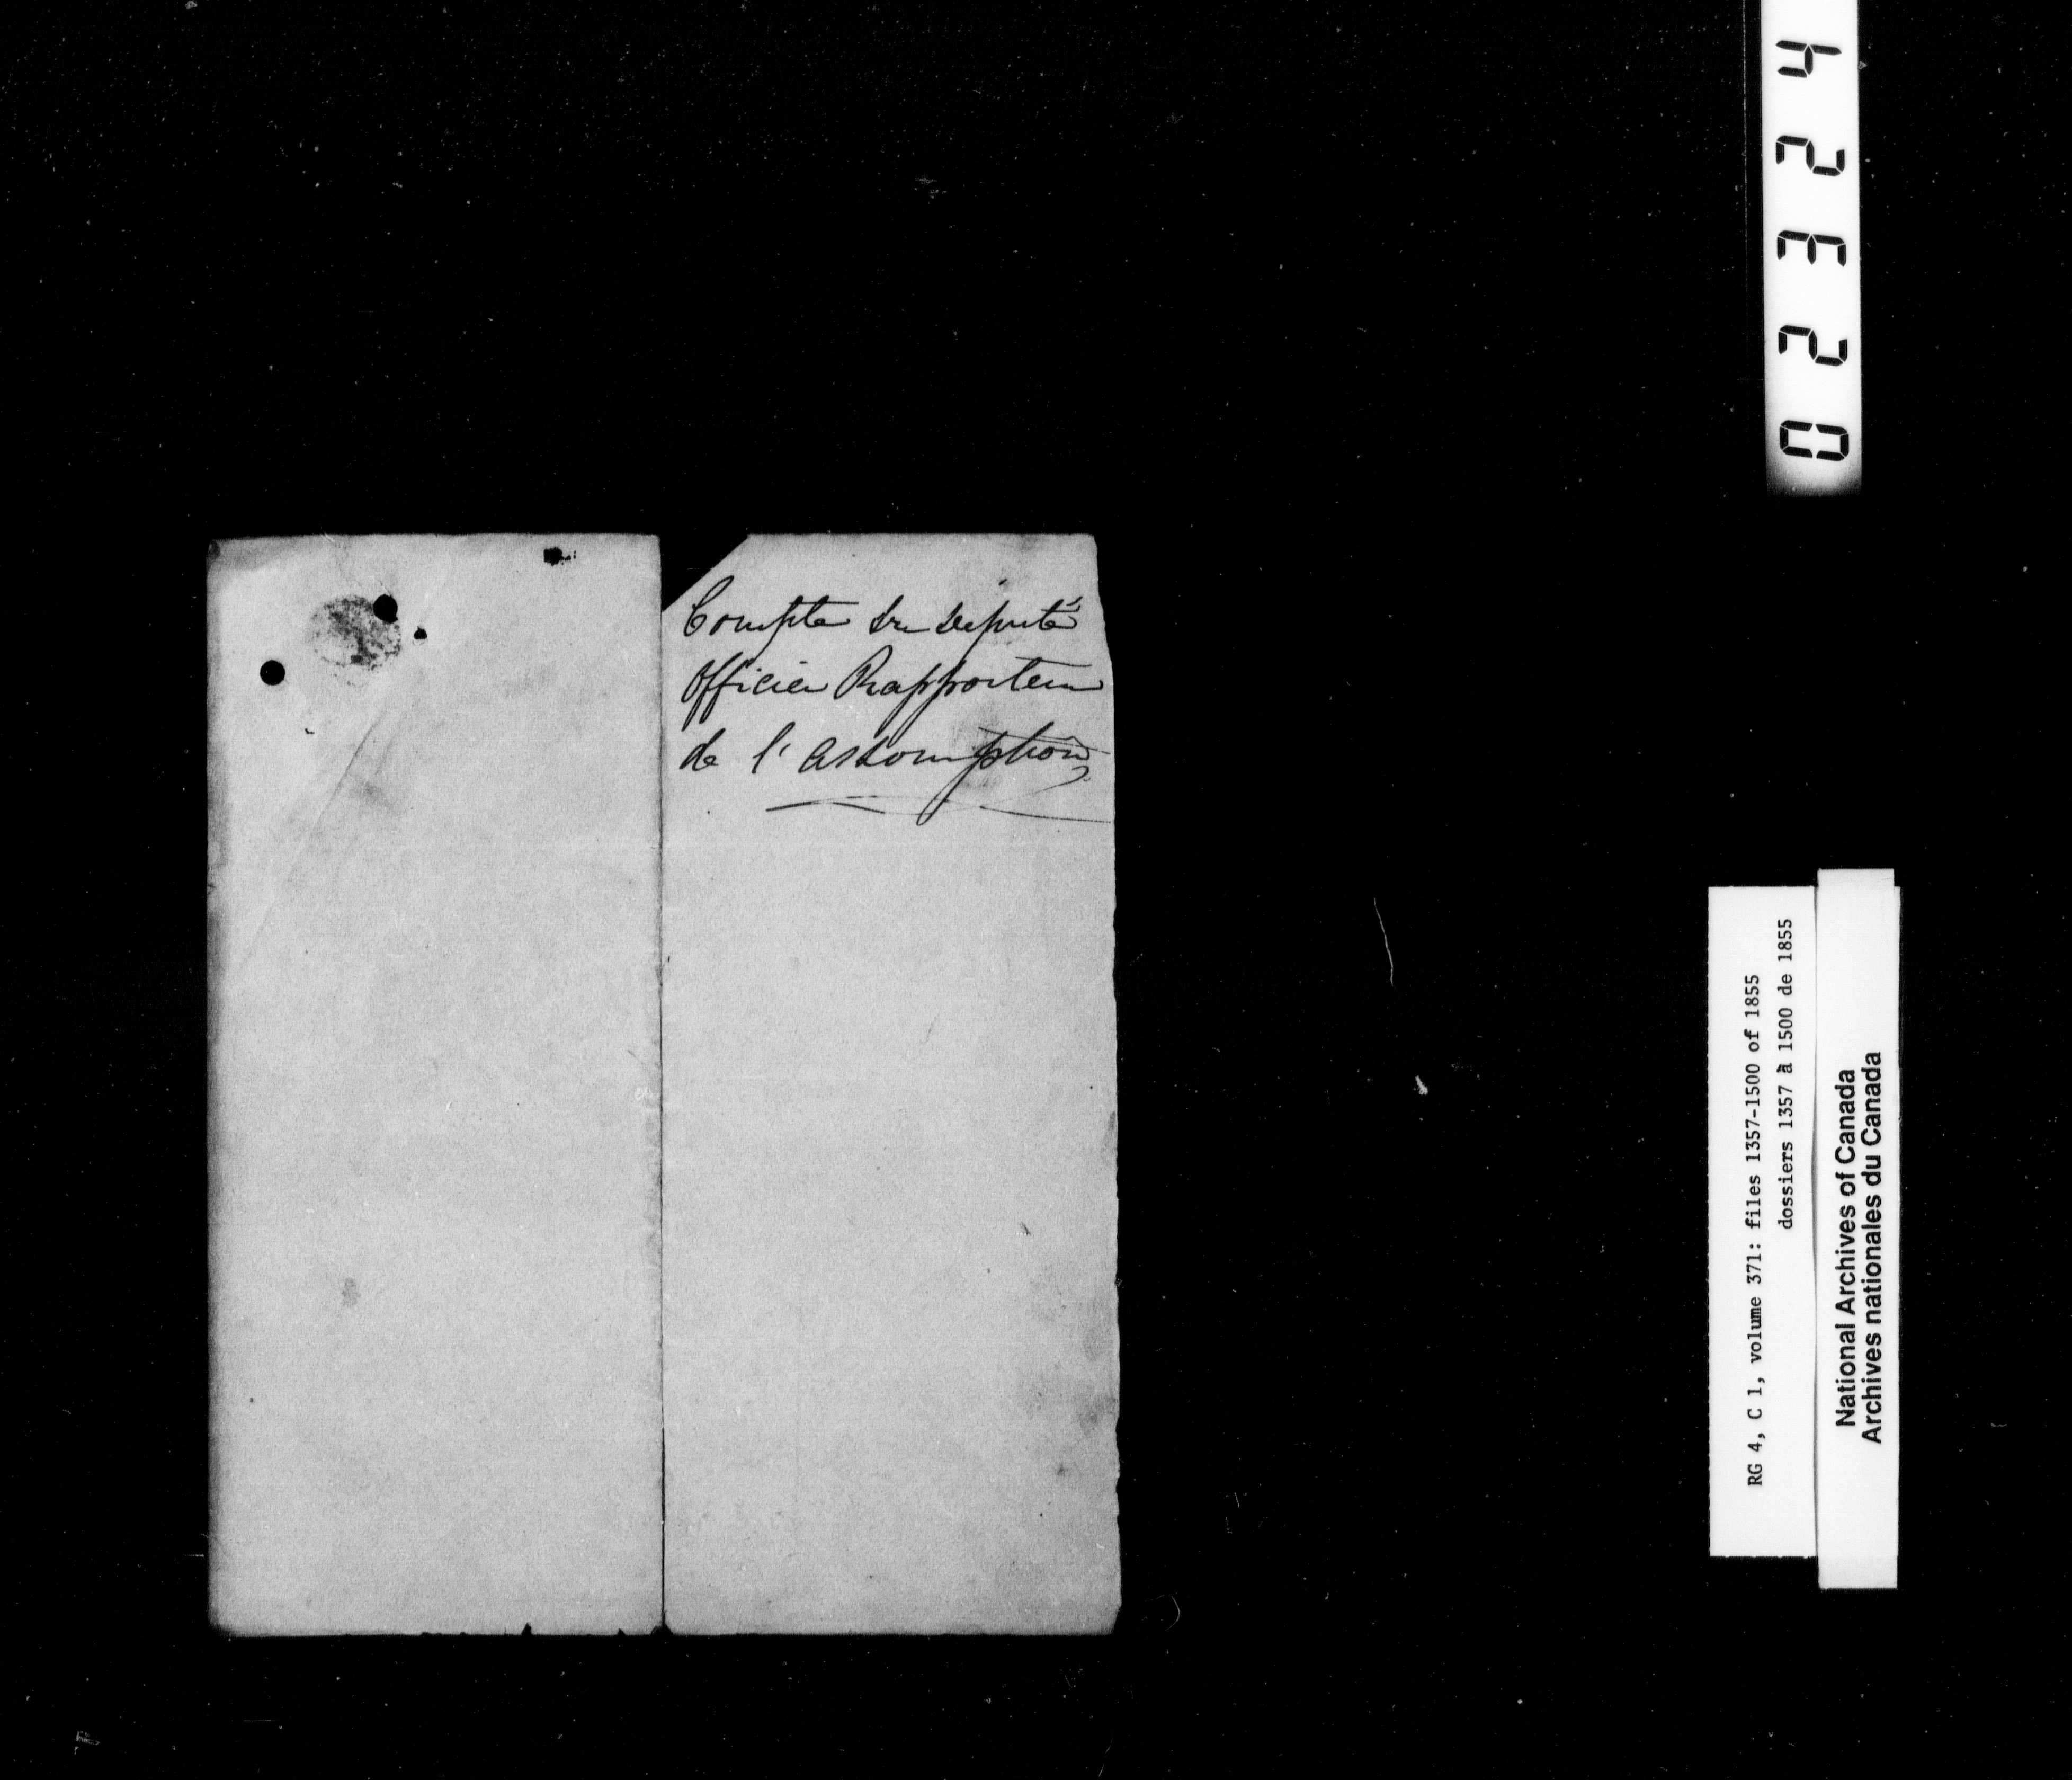 Compte du Député
Officier Rapporteur
de l'assomption
02324
RG 4, C 1, volume 371: files 1357-1500 of 1855
dossiers 1357 à 1500 de 1855
National Archives of Canada
Archives nationales du Canada